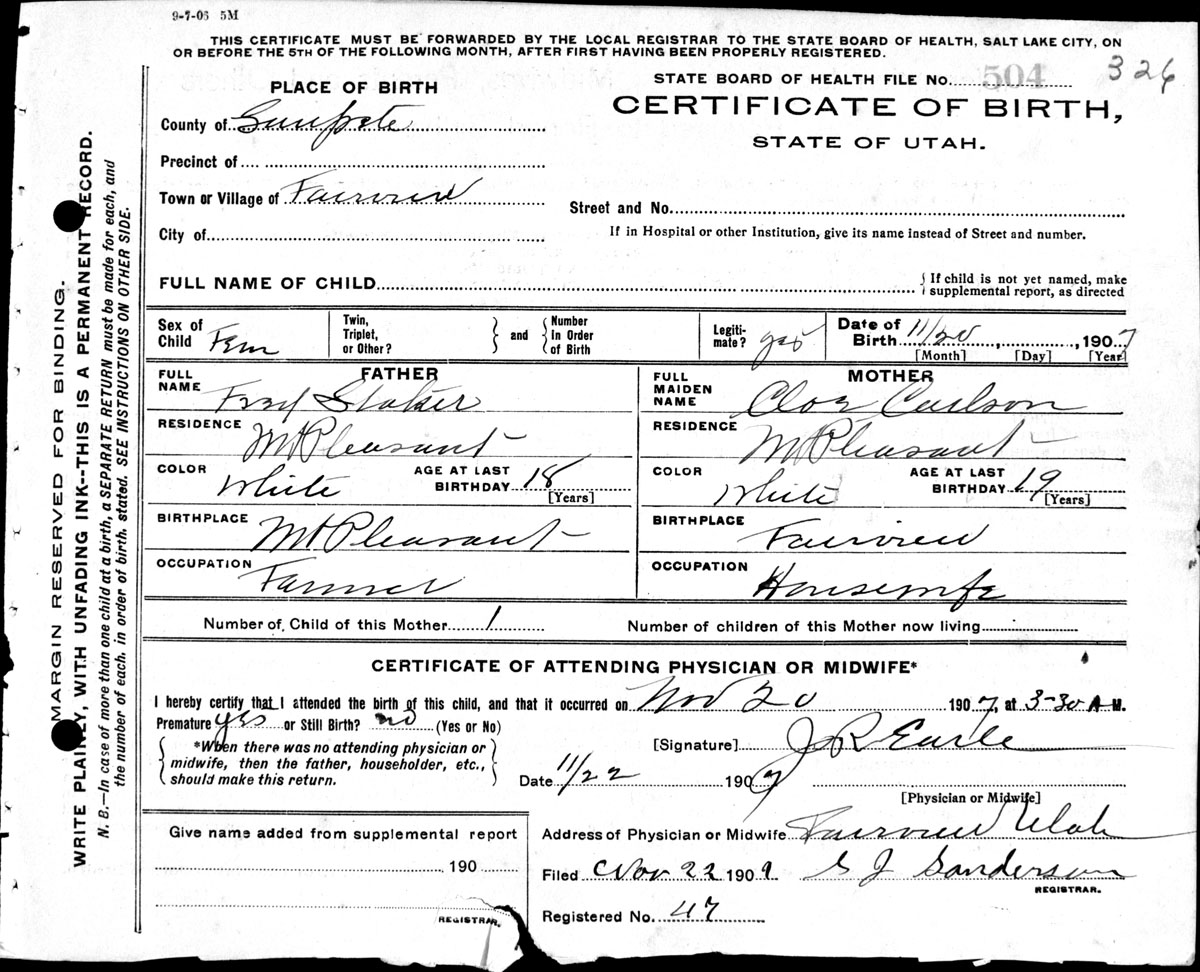 9-7-06 5M
THIS CERTIFICATE MUST BE FORWARDED BY THE LOCAL REGISTRAR TO THE STATE BOARD OF HEALTH, SALT LAKE CITY, ON
OR BEFORE THE 5TH OF THE FOLLOWING MONTH, AFTER FIRST HAVING BEEN PROPERLY REGISTERED.
STATE BOARD OF HEALTH FILE No. 504 326
PLACE OF BIRTH
CERTIFICATE OF BIRTH,
STATE OF UTAH.
County of Sanpete
Precinct of
Town or Village of Fairview
Street and No.
City of
If in Hospital or other Institution, give its name instead of Street and number.
FULL NAME OF CHILD
{ If child is not yet named, make
supplemental report, as directed
Sex of Child Fem
Twin, Triplet, or Other? } and { Number In Order of Birth
Legiti-mate? yes
Date of Birth 11/20, 1907
[Month] [Day] [Year]
FATHER
FULL NAME Fred Staker
RESIDENCE Mt Pleasant
COLOR White AGE AT LAST BIRTHDAY 18 [Years]
BIRTHPLACE Mt Pleasant
OCCUPATION Farmer
MOTHER
FULL MAIDEN NAME Carlson
RESIDENCE Mt Pleasant
COLOR White AGE AT LAST BIRTHDAY 19 [Years]
BIRTHPLACE Fairview
OCCUPATION Housewife
Number of Child of this Mother 1
Number of children of this Mother now living
CERTIFICATE OF ATTENDING PHYSICIAN OR MIDWIFE*
I hereby certify that I attended the birth of this child, and that it occurred on Nov 20 1907, at 3-30 A M.
Premature yes or Still Birth? no (Yes or No)
{ *When there was no attending physician or
midwife, then the father, householder, etc.,
should make this return. }
[Signature] J R Earle
Date 11/22 1907
[Physician or Midwife]
Give name added from supplemental report
190
REGISTRAR.
Address of Physician or Midwife Fairview Utah
Filed Nov 22 190 S J Sanderson
REGISTRAR.
Registered No. 47
MARGIN RESERVED FOR BINDING.
WRITE PLAINLY, WITH UNFADING INK--THIS IS A PERMANENT RECORD.
N. B.—In case of more than one child at a birth, a SEPARATE RETURN must be made for each, and
the number of each, in order of birth, stated. SEE INSTRUCTIONS ON OTHER SIDE.